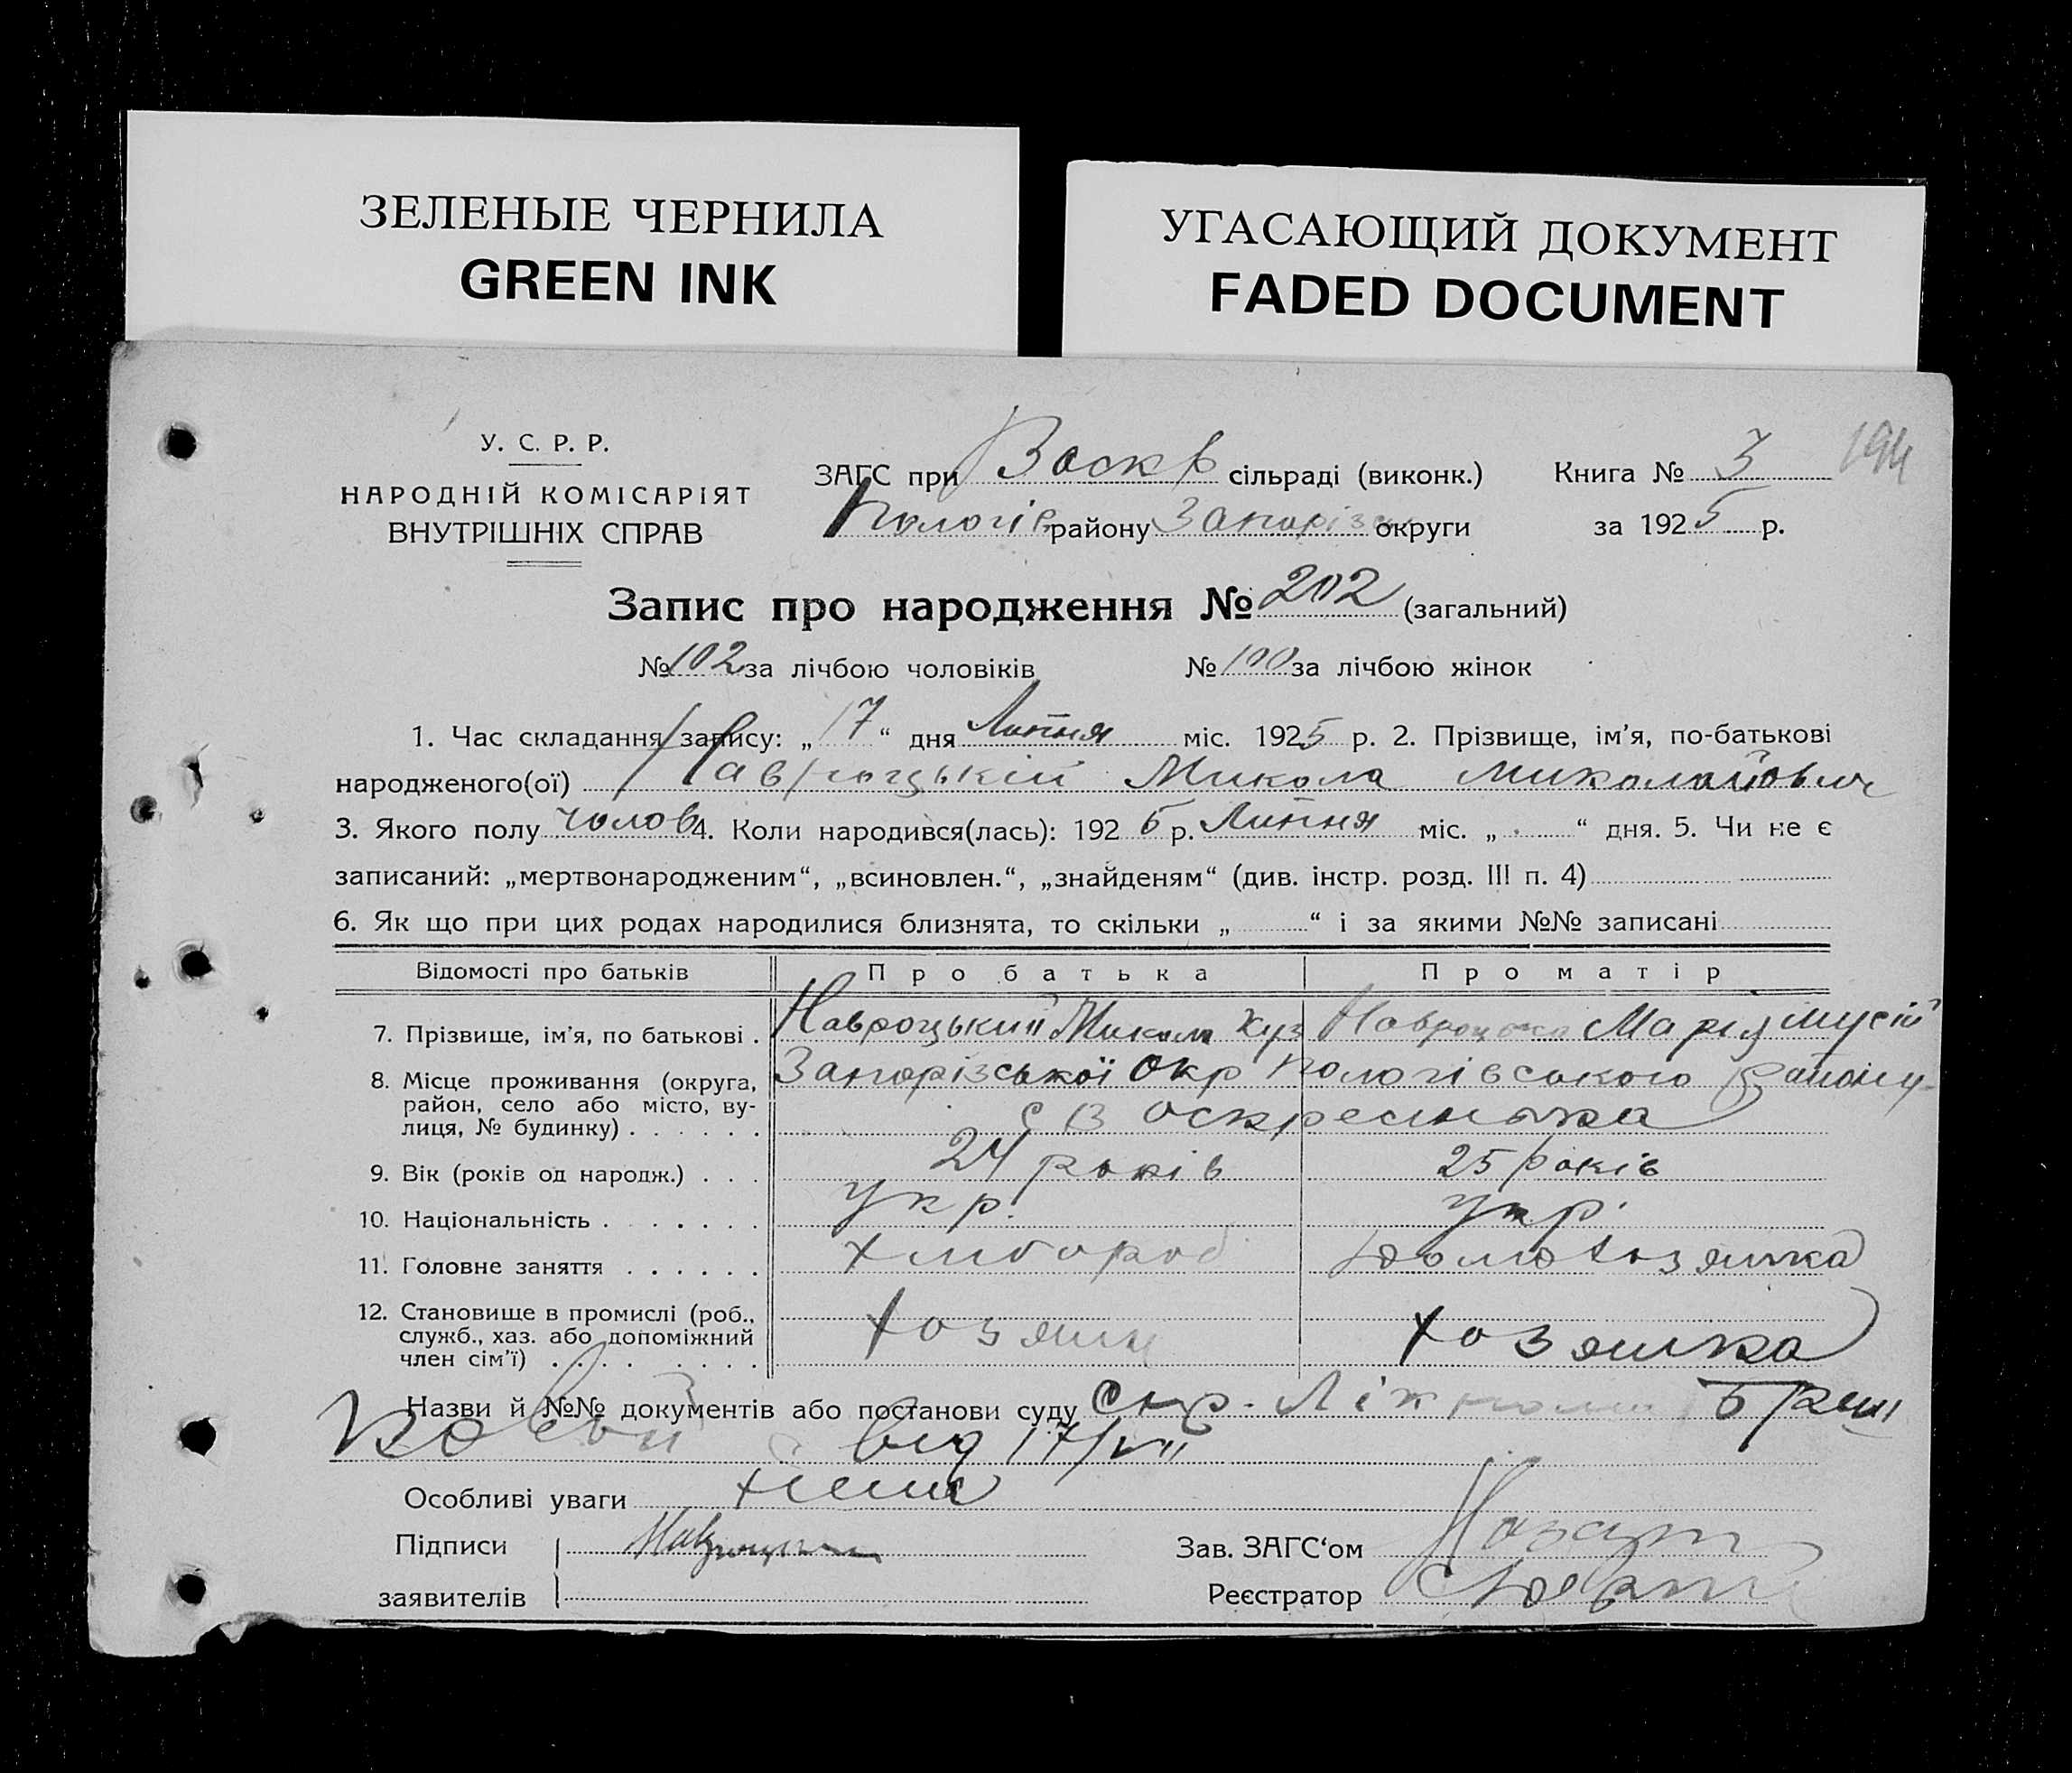 ЗЕЛЕНЫЕ ЧЕРНИЛА
GREEN INK
УГАСАЮЩИЙ ДОКУМЕНТ
FADED DOCUMENT
У. С. Р. Р.
НАРОДНІЙ КОМІСАРІЯТ
ВНУТРІШНІХ СПРАВ
ЗАГС при Воскр сільраді (виконк.)
Пологів району Запоріз округи
Книга № 3
194
за 1925 р.
Запис про народження № 202 (загальний)
№ 102 за лічбою чоловіків № 100 за лічбою жінок
1. Час складання запису: „17“ дня Липня міс. 1925 р. 2. Прізвище, ім'я, по-батькові
народженого(ої) Навроцький Микола Миколайович
3. Якого полу чолов 4. Коли народився(лась): 1925 р. Липня міс. „ “ дня. 5. Чи не є
записаний: „мертвонародженим“, „всиновлен.“, „знайденям“ (див. інстр. розд. III п. 4)
6. Як що при цих родах народилися близнята, то скільки „ “ і за якими №№ записані
Відомості про батьків Про батька Про матір
7. Прізвище, ім'я, по батькові . Навроцький Микола Куз Навроцька Марія Мусій
8. Місце проживання (округа, район, село або місто, ву-лиця, № будинку) Запорізської Окр Пологівського Району
с Воскресенка
9. Вік (років од народж.) . . . 24 років 25 років
10. Національність . . . . . . . укр. укр.
11. Головне заняття . . . . . . хлибороб домохозяйка
12. Становище в промислі (роб., служб., хаз. або допоміжний член сім'ї) хозяин хозяйка
Назви й №№ документів або постанови суду
від 17/VII
Особливі уваги
Підписи
заявителів
Зав. ЗАГС'ом
Реєстратор